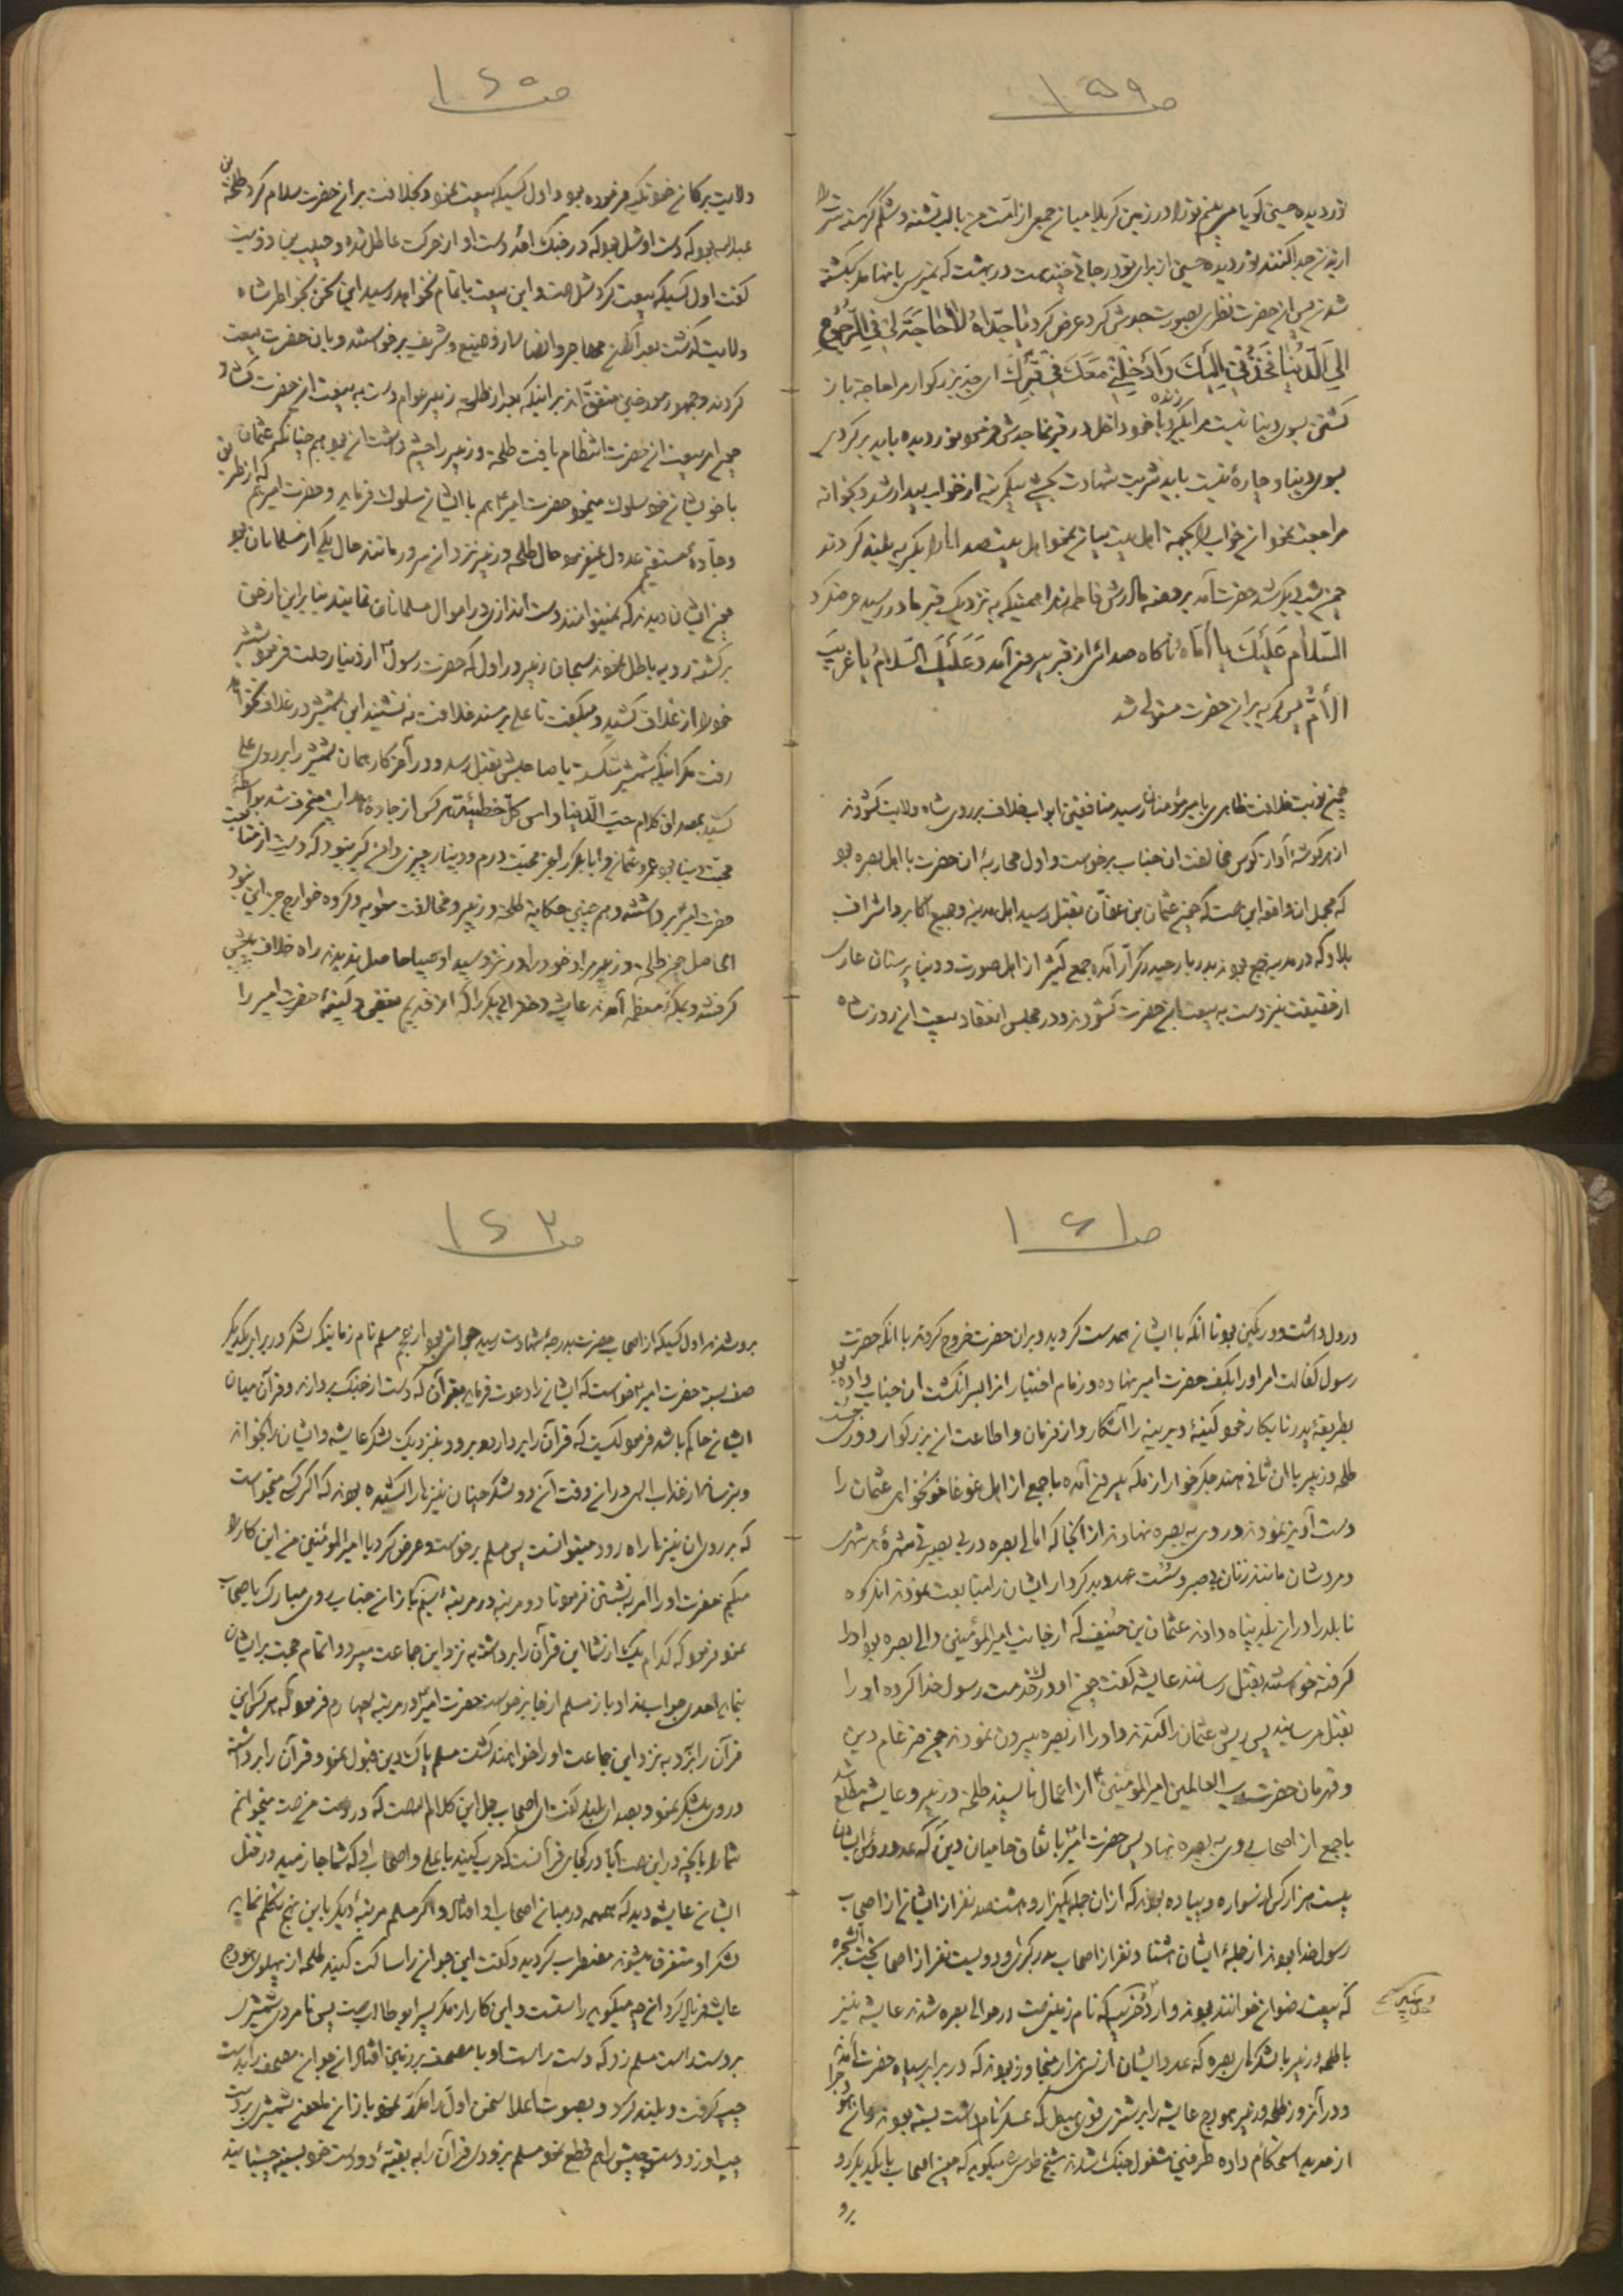 صـ ۱۵۹
نوردیده حسین گویا می بینم تو را در زمین کربلا میان جمعی از امت من با لب تشنه و شکم گرسنه سرت را
از بدنت جدا کنند نوردیده حسین از برای تو درجاتی چند هست در بهشت که نمیرسی بانها مگر بکشته
شدن پس آن حضرت نظری بصورت جدش کرد عرض کرد یا جداه لا حاجة لی فی الرجوع
الی الدنیا فخذنی الیک و ادخلنی معک فی قبرک ای جد بزرگوار مرا حاجة باز
گشتن بسوی دنیا نیست مرا بگیر و با خود داخل در قبر نما جدش فرمود نوردیده باید برگردی
بسوی دنیا و چارهٔ نیست باید شربت شهادت بچشی پس گریه از خواب بیدار شد و بخانه
مراجعت نمود آن خواب را بجهة اهل بیت بیان نمود اهل بیت صداها را بگریه بلند کردند
چون شب دیگر شد حضرت آمد بروضه مادرش فاطمه زهرا همینکه به نزدیک قبر مادر رسید عرض کرد
السلام علیک یا اماه ناگاه صدائی از قبر بیرون آمد و علیک السلام یا غریب
الأم پس گریه بر آن حضرت مستولی شد
چون نوبت خلافت ظاهری بامیرمؤمنان رسید منافقین ابواب خلاف بر روی شاه ولایت گشودند
از هر گوشه آواز کوس مخالفت ان جناب برخواست و اول محاربهٔ ان حضرت با اهل بصره بود
که مجمل ان واقعه این است که چون عثمان بن عفان بقتل رسید اهل مدینه و جمیع اکابر و اشراف
بلاد که در مدینه جمع بودند بدربار حیدر کرار آمده جمع کثیر از اهل صورت و دنیا پرستان عاری
از حقیقت نیز دست به بیعت آن حضرت گشودند و در مجلس انعقاد بیعت آن روز شاه
صـ ۱۶۰
ولایت برکاتی خود تکیه فرموده بود و اول کسیکه بیعت نمود و بخلافت بر آن حضرت سلام کرد طلحة بن
عبدالله بود که دست او شل بود که در جنک احد دست او از حرکت عاطل شده و حبیب بن ذویب
گفت اول کسیکه بیعت کرد شل است و این بیعت باتمام نخواهد رسید این سخن بخواطر شاه
ولایت گذشت بعد از آن مهاجر و انصار از وضیع و شریف برخواستند و بان حضرت بیعت
کردند و جمهور مورخین متفق اند بر اینکه بعد از طلحة زبیر عوام دست به بیعت ان حضرت گشاد و
چون امر بیعت ان حضرت انتظام یافت طلحة و زبیر را چشم داشت ان بود هم چنانکه عثمان
با خویشان خود سلوک مینمود حضرت امیر هم با ایشان سلوک فرماید و حضرت امیر هم که از طریق
و جاده مستقیم عدول نمیفرمود حال طلحه و زبیر نزد ان سرور مانند حال یکی از مسلمانان بود
چون ایشان دیدند که نمیتوانند دست اندازی در اموال مسلمانان نمایند بنا براین از حق
برگشته رو به باطل نمودند سبحان زبیر در اول که حضرت رسول از دنیا رحلت فرمود شمشیر
خود را از غلاف کشید و میگفت تا علی بر مسند خلافت نه نشیند این شمشیر در غلاف نخواهد
رفت مگر اینکه شمشیر شکسته یا صاحبش بقتل رسد و در آخر کار همان شمشیر را بر روی علی
کشید بمصداق کلام حب الدنیا راس کل خطیئة هر کس از جاده هدایت منحرف شد بواسطه
محبت دنیا بود عمر و عثمان و ابابکر را بجز محبت درم و دینار چیزی دامن گیر نبود که دست از متابعت
حضرت امیر برداشتند و هم چنین حکایة طلحة و زبیر و مخالفت معویه و گروه خوارج جز این نبود
الحاصل چون طلحه و زبیر مراد خود را در نزد سید اوصیا حاصل ندیدند راه خلاف پیش
گرفتند و بمکه معظمه آمدند عایشه دختر ابی بکر را که از قدیم بغض و کینهٔ حضرت امیر را
صـ ۱۶۱
در دل داشت و در کمین بود تا آنکه با ایشان همدست گردید و بر ان حضرت خروج کردند با آنکه حضرت
رسول کفالت امر او را بکف حضرت امیر نهاده و زمام اختیار انرا بسر انگشت ان جناب داده بود
بطریقهٔ پدر نابکار خود کینهٔ دیرینه را آشکار و از فرمان و اطاعت ان بزرگوار دوری جست
طلحه و زبیر با ان ثانی هند جگر خوار از مکه بیرون آمده با جمعی از اهل غوغا خونخواهی عثمان را
دست آویز نموده روی به بصره نهادند از انجا که اهالی بصره در بی بصیرتی شهرهٔ هر شهری
و مردشان مانند زنان بی صبر و سست عهد و بدکردار ایشان را متابعت نمودند اند گروه
نابلد را در ان بلد پناه دادند عثمان بن حنیف که از جانب امیرالمؤمنین والی بصره بود او را
گرفته خواستند بقتل رسانند عایشه گفت چون او در خدمت رسول خدا کرده او را
بقتل مرسانید پس ریش عثمان را کندند و او را از بصره بیرون نمودند چون ضرغام دین
و قهرمان حضرت رب العالمین امیرالمؤمنین از اعمال ناپسند طلحه و زبیر و عایشه مطلع شد
با جمعی از اصحاب روی به بصره نهاد پس حضرت امیر باتفاق حامیان دین که عدد رؤس ایشان
بیست هزار کس از سواره و پیاده بودند که از ان جمله یکهزار و هشتصد نفر از ایشان از اصحاب
رسول خدا بودند از جملهٔ ایشان هشتاد نفر از اصحاب بدر کبری و دویست نفر از اصحاب تحت الشجره
که بیعت رضوان خوانند بودند وارد خریبه که نام زمینی است در حوالی بصره شدند عایشه نیز
با طلحه و زبیر با لشکر بصره که عدد ایشان از سی هزار متجاوز بودند که در برابر سپاه حضرت آمدند
و در آنروز طلحه و زبیر هودج عایشه را بر شتری قوی هیکل که عسکر نام داشت بسته بودند و ان هودج را
از حدید استحکام داده طرفین مشغول جنک شدند شیخ طوسی میگوید که چون اصحاب با یکدیگر رو
برو
صـ ۱۶۲
برو شدند اول کسیکه از اصحاب حضرت بدرجه شهادت رسید جوانی بود از بنی مسلم نام زمانیکه لشکر در برابر یکدیگر
صف بستند حضرت امیر خواست که ایشان را دعوت فرماید بقرآن که دست از جنک بردارند و قرآن میان
ایشان حاکم باشد فرمود کیست که قرآن را بردارد و برود بنزدیک لشکر عایشه و ایشان را بخواند
و بترساند از عذاب الهی در ان وقت آن دو لشکر چنان نیزها را کشیده بودند که اگر کسی میخواست
که بر روی ان نیزها راه رود میتوانست پس مسلم برخواست و عرض کرد یا امیرالمؤمنین من این کار را
میکنم حضرت او را امر به نشستن فرمود تا دو مرتبه در مرتبهٔ سیم باز ان جناب روی مبارک باصحاب
نمود فرمود که کدام یک از شما این قرآن را برداشته به نزد این جماعت میبرد و اتمام حجت بر ایشان
نماید احدی جواب نداد باز مسلم از جا برخواست حضرت امیر در مرتبهٔ چهارم فرمود که هر کس این
قرآن را ببرد به نزد این جماعت او را خواهند کشت مسلم پاک دین قبول نمود و قرآن را برداشته
و روی بلشکر نمود و بصدای بلند گفت ای اصحاب جمل این کلام الله است که در دست من است میخوانم
شما را بانچه در این است آیا در کجای قرآنست که حرب کنید با علی و اصحاب او که شما جازمید در قتل
ایشان عایشه دید که همهمه در میان اصحاب او افتاد و اگر مسلم مرتبهٔ دیگر باین نهج تکلم نماید
لشکر او متفرق میشوند مضطرب گردید و گفت این جوان را ساکت کنید طلحه از پهلوی هودج
عایشه فریاد کرد انچه میگوید راستست و این کار از مکر پسر ابوطالب است پس نامردی شمشیر
بر دست راست مسلم زد که دست راست او با مصحف بر زمین افتاد ان جوان مصحف را بدست
چپ گرفت و بلند کرد و بصوت اعلا سخن اول را مکرر نمود باز ان ملعون شمشیر بر دست
چپ او زد دست چپش را هم قطع نمود مسلم بزودی قرآن را به بقیهٔ دو دست خود بسینه چسبانید